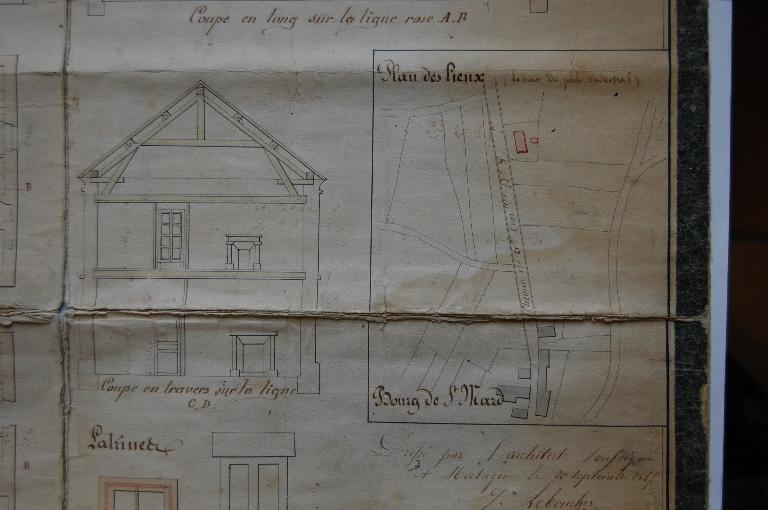 Coupe en long sur la ligne rose A.B
Plan des lieux (Extrait du plan cadastral)
B
Coupe en travers sur la ligne
C.D.
Bourg de St Mard
Latrines
B
Dressé par l'architecte soussigné
à Mortagne le 20 septembre